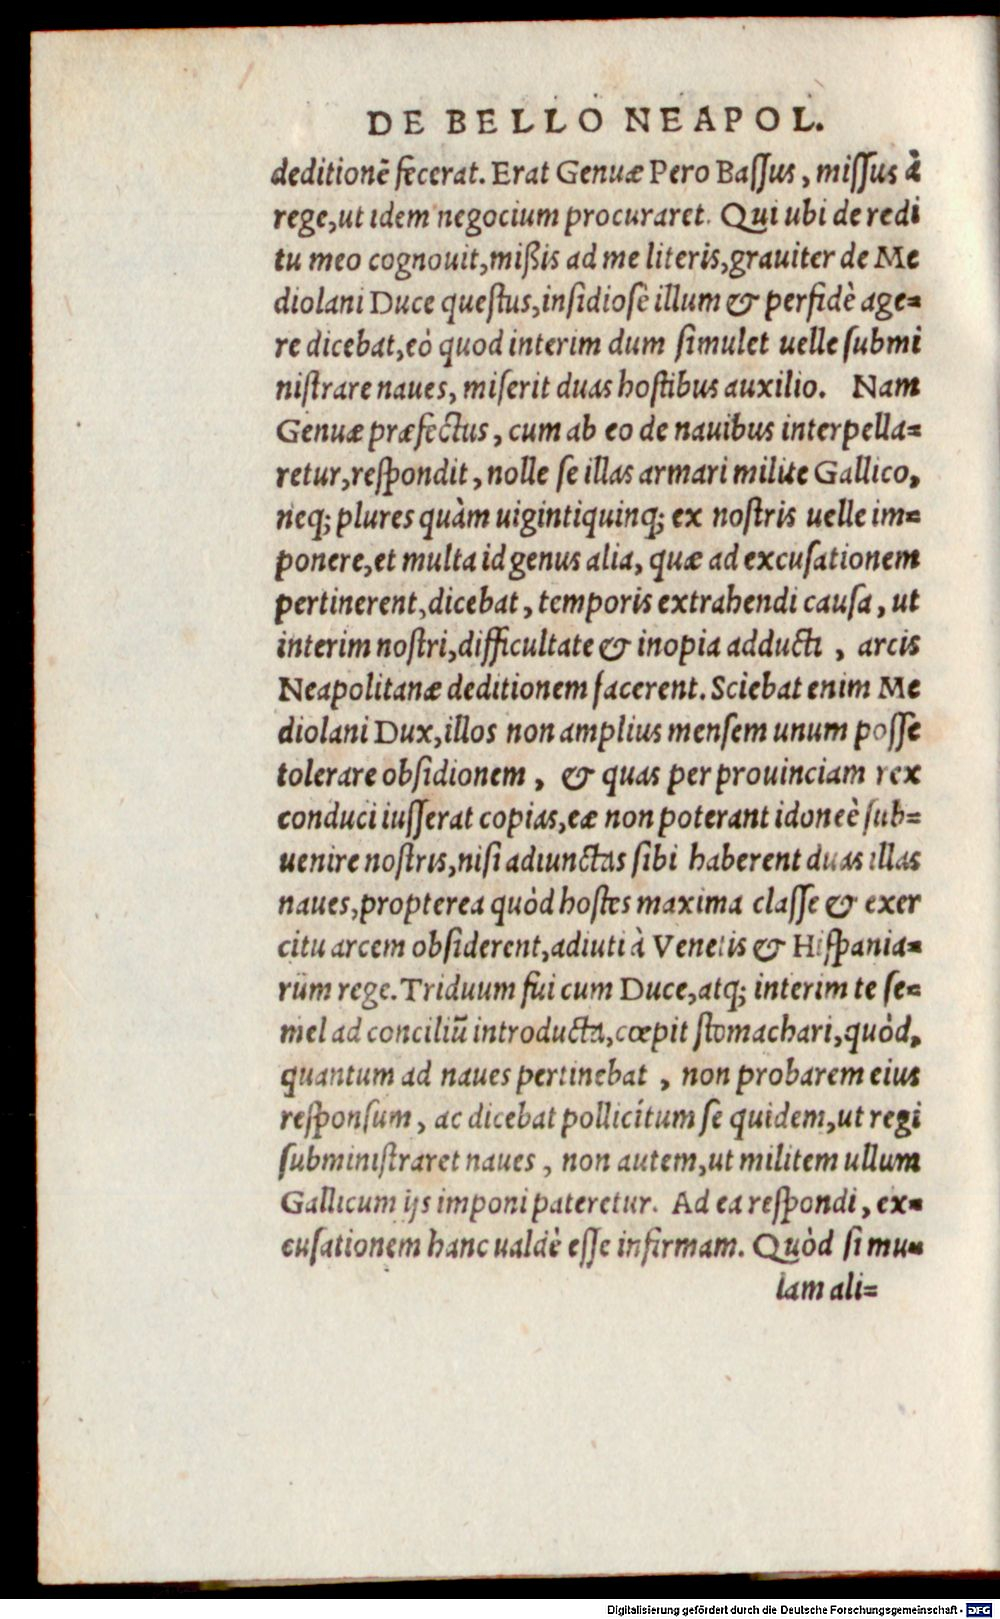 DE BELLO NEAPOL.
deditionē fecerat. Erat Genuæ Pero Baſſus, miſſus à
rege, ut idem negocium procuraret. Qui ubi de redi
tu meo cognouit, mißis ad me literis, grauiter de Me
diolani Duce queſtus, inſidioſè illum & perfidè age=
re dicebat, eò quod interim dum ſimulet uelle ſubmi
niſtrare naues, miſerit duas hoſtibus auxilio. Nam
Genuæ præfectus, cum ab eo de nauibus interpella=
retur, reſpondit, nolle ſe illas armari milite Gallico,
neq; plures quàm uigintiquinq; ex noſtris uelle im=
ponere, et multa id genus alia, quæ ad excuſationem
pertinerent, dicebat, temporis extrahendi cauſa, ut
interim noſtri, difficultate & inopia adducti, arcis
Neapolitanæ deditionem facerent. Sciebat enim Me
diolani Dux, illos non amplius menſem unum poſſe
tolerare obſidionem, & quas per prouinciam rex
conduci iuſſerat copias, eæ non poterant idoneè ſub=
uenire noſtris, niſi adiunctas ſibi haberent duas illas
naues, propterea quòd hoſtes maxima claſſe & exer
citu arcem obſiderent, adiuti à Venetis & Hiſpania=
rum rege. Triduum fui cum Duce, atq; interim te ſe=
mel ad conciliū introducta, cœpit ſtomachari, quòd,
quantum ad naues pertinebat, non probarem eius
reſponſum, ac dicebat pollicitum ſe quidem, ut regi
ſubminiſtraret naues, non autem, ut militem ullum
Gallicum ijs imponi pateretur. Ad ea reſpondi, ex=
cuſationem hanc ualdè eſſe infirmam. Quòd ſi mu=
lam ali=
Digitalisierung gefördert durch die Deutsche Forschungsgemeinschaft - DFG